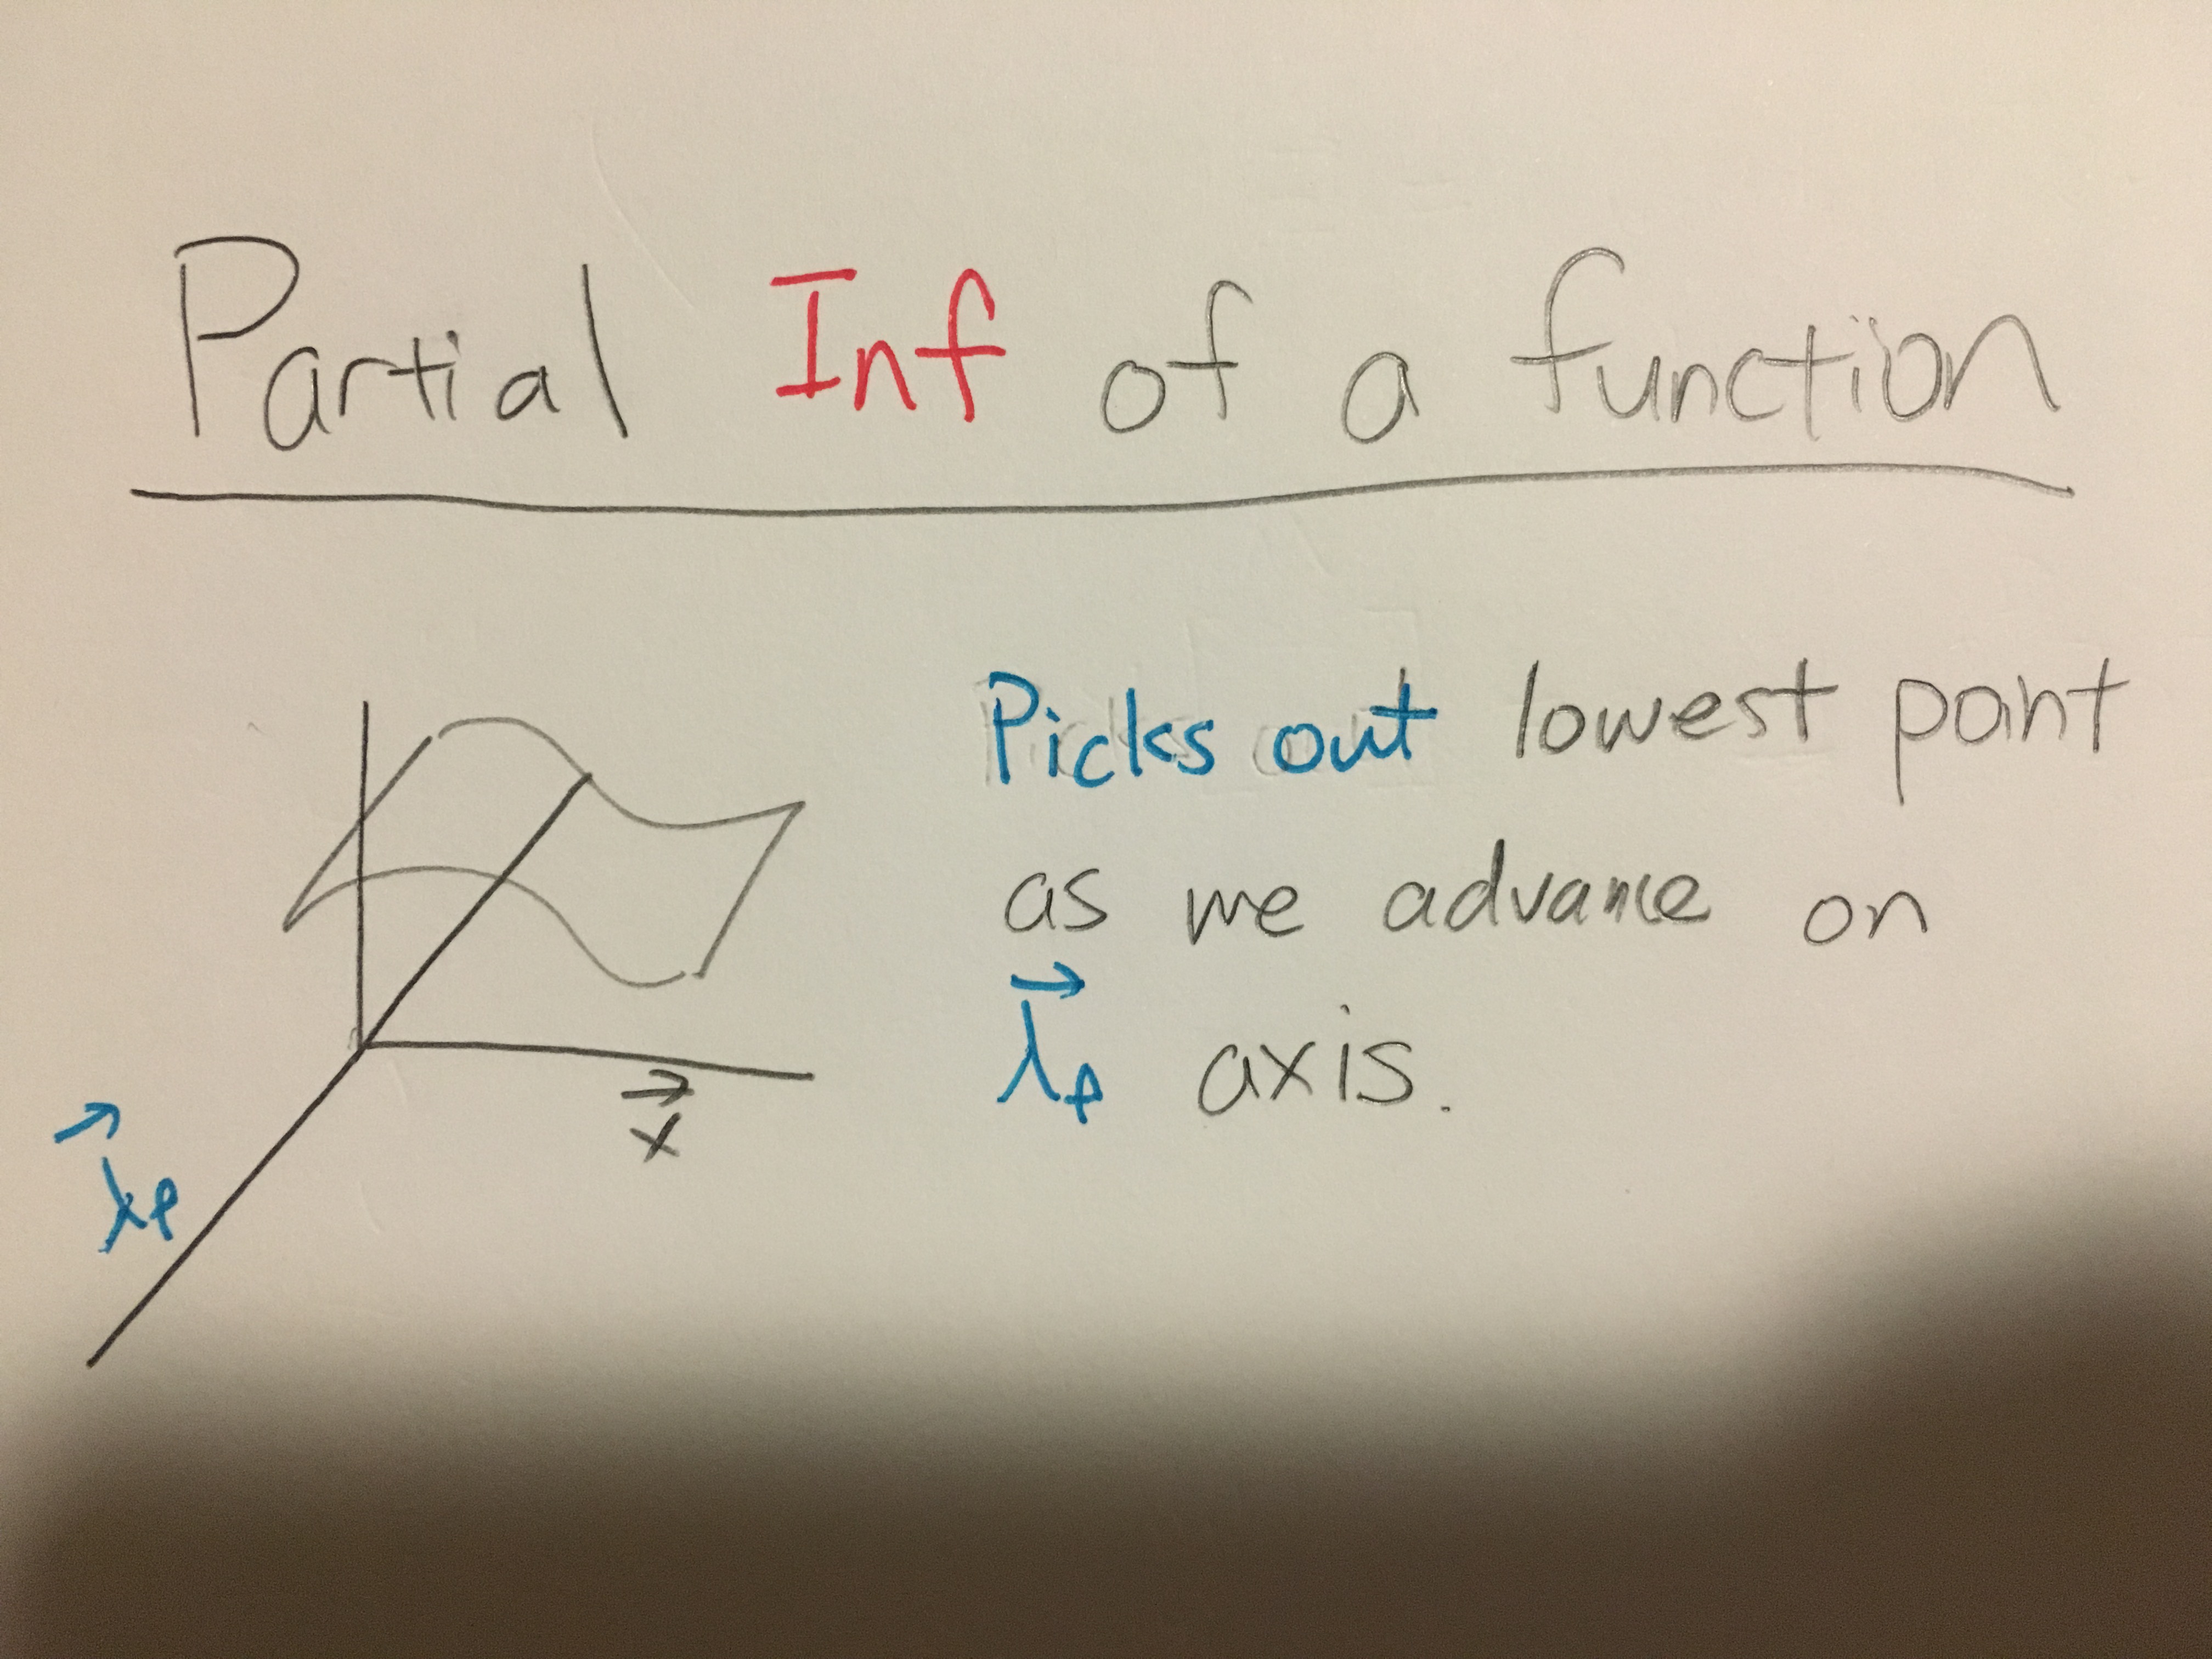 Partial Inf of a function
Picks out lowest point
as we advance on
λₚ axis.
x
λₚ